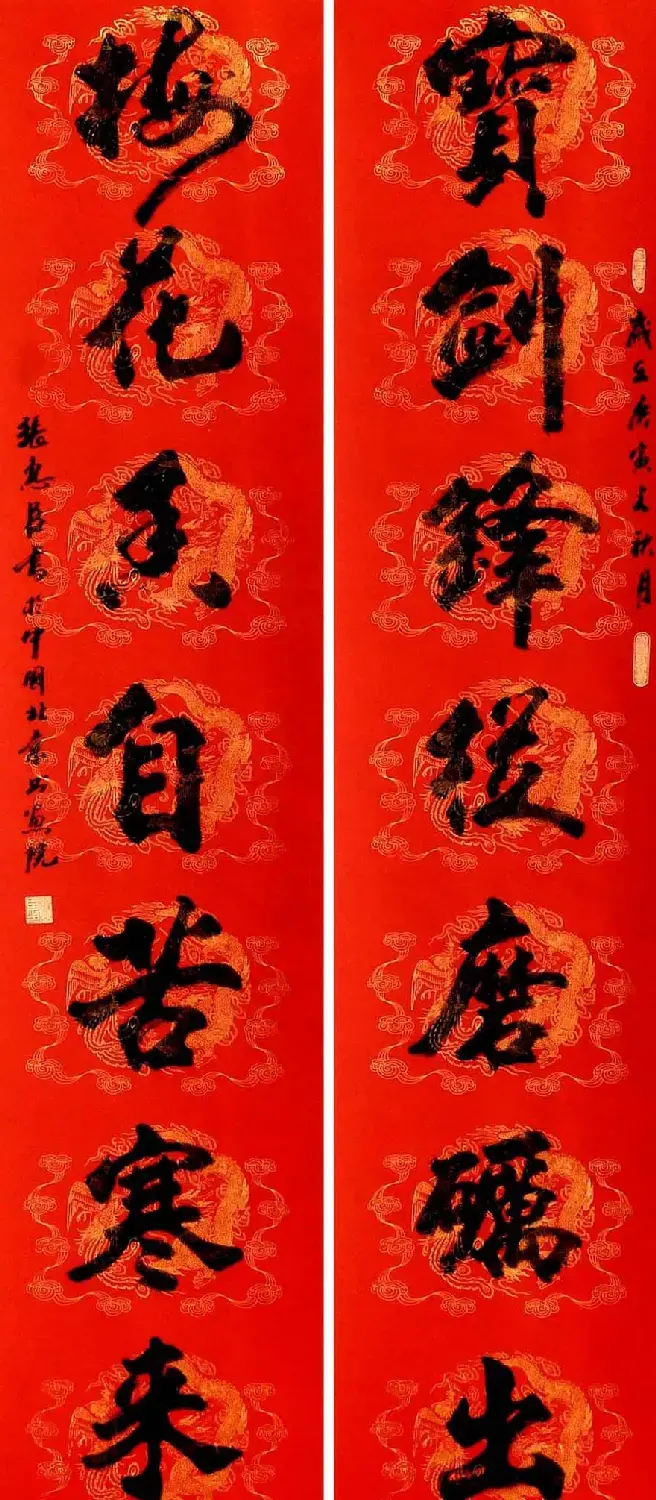 歲在庚寅之秋月
寶劍鋒從磨礪出
梅花香自苦寒来
張惠臣書於中國北京书画院